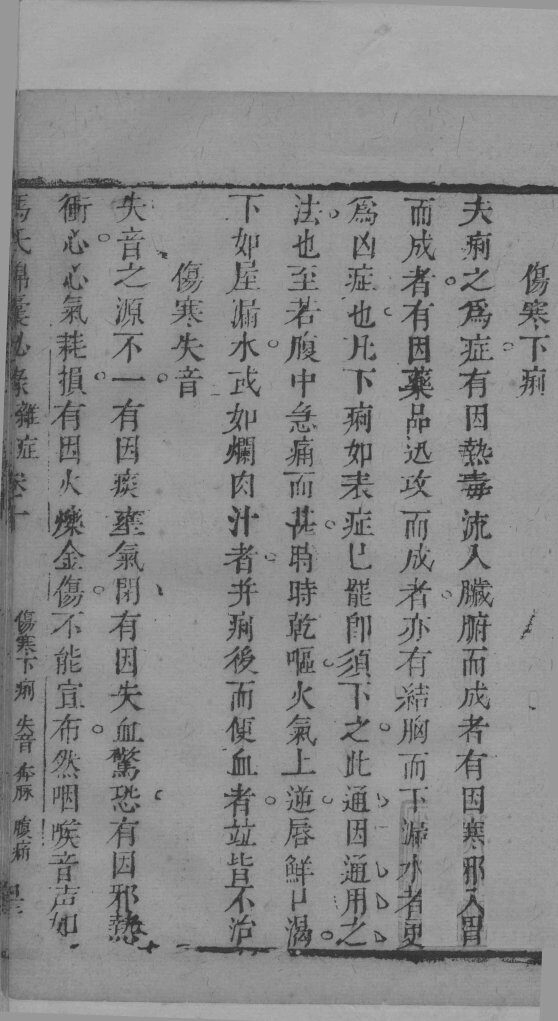 傷寒下痢
夫痢之爲症有因熱毒流入臟腑而成者有因寒邪入胃
而成者有因藥品迅攻而成者亦有結胸而下漏水者更
爲凶症也凡下痢如表症已罷卽須下之此通因通用之
法也至若腹中急痛而甚時時乾嘔火氣上逆唇鮮口渴
下如屋漏水或如爛肉汁者并痢後而便血者竝皆不治
傷寒失音
失音之源不一有因痰壅氣閉有因失血驚恐有因邪熱
衝心心氣耗損有因火爍金傷不能宣布然咽喉音声如
馮氏錦囊秘录雜症 卷十 傷寒下痢 失音 奔豚 腹痛